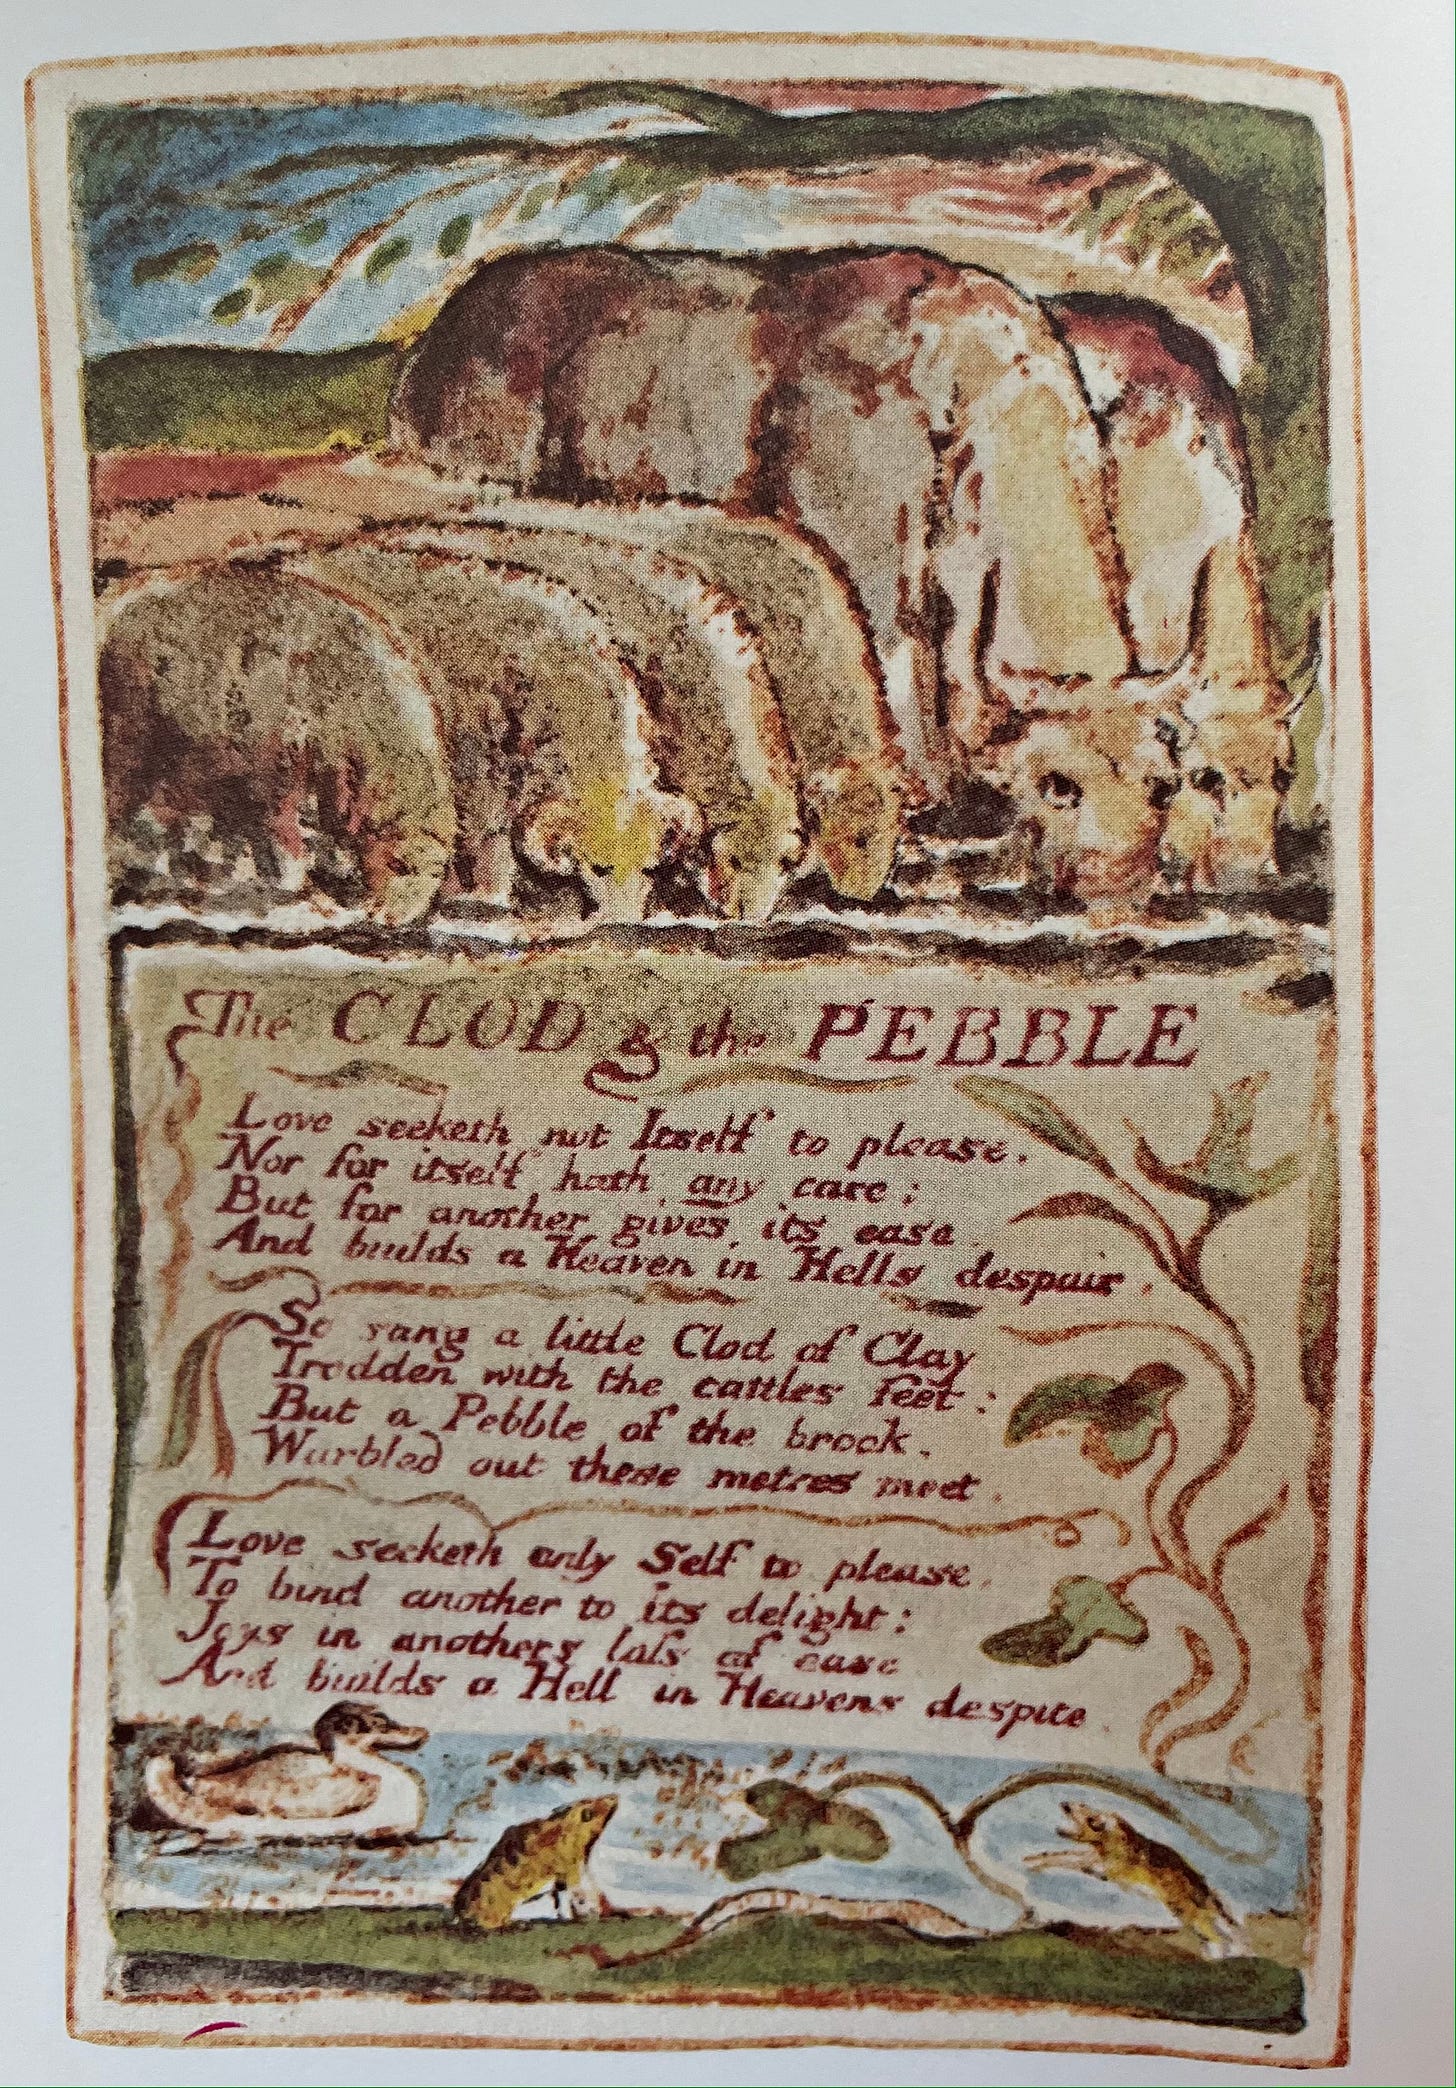 The CLOD & the PEBBLE
Love seeketh not Itself to please.
Nor for itself hath any care;
But for another gives its ease
And builds a Heaven in Hells despair.
So sang a little Clod of Clay
Trodden with the cattles feet:
But a Pebble of the brook.
Warbled out these metres meet.
Love seeketh only Self to please,
To bind another to its delight:
Joys in anothers loss of ease
And builds a Hell in Heavens despite